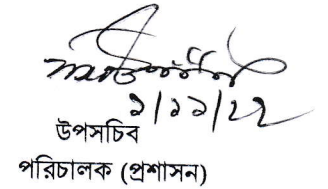 ১/১১/২২
উপসচিব
পরিচালক (প্রশাসন)